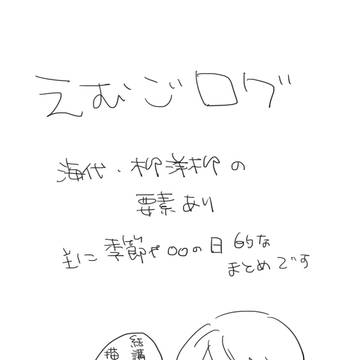 えむごログ
海代・柳洋柳の
要素あり
主に季節や○○の日的な
まとめです
結講
描